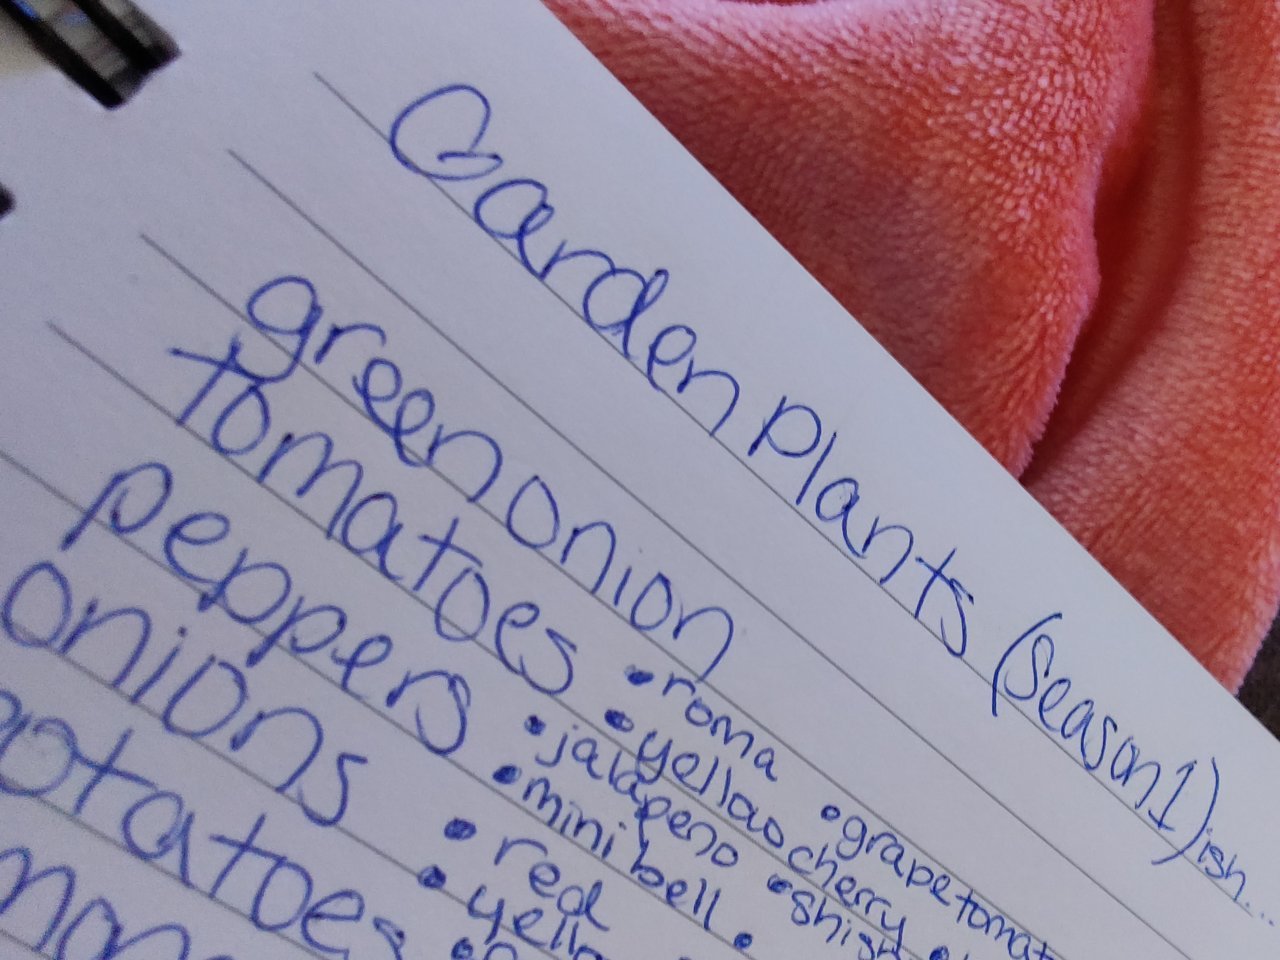 Garden Plants (Season 1) ish...
green onion
tomatoes • roma • grape tomat
• yellow cherry •
peppers • jalapeno • shish
• mini bell •
onions • red
• yello
potatoes •